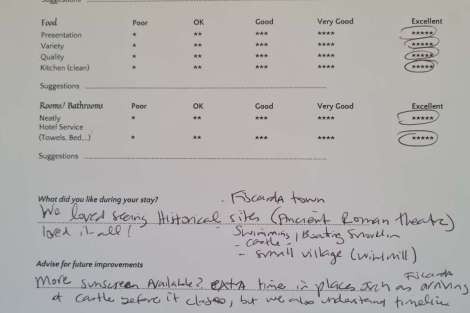 Suggestions
Food Poor OK Good Very Good Excellent
Presentation * ** *** **** *****
Variety * ** *** **** *****
Quality * ** *** **** *****
Kitchen (clean) * ** *** **** *****
Suggestions
Rooms/ Bathrooms Poor OK Good Very Good Excellent
Neatly * ** *** **** *****
Hotel Service
(Towels, Bed...) * ** *** **** *****
Suggestions
What did you like during your stay? - Fiscarda town
We loved seeing Historical sites (Ancient Roman Theatre)
loved it all! - Swimming, Boating
- castle -
- small village (windmill)
Advise for future improvements
Fiscarda
More sunscreen Available? extra time in places such as arriving
at castle before it closes, but we also understand timeline